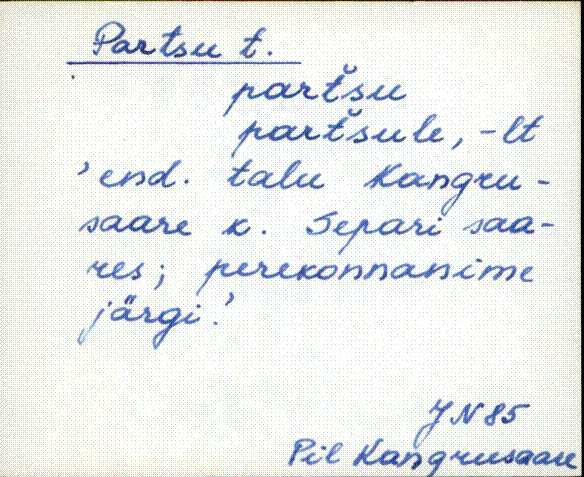 Partsu t.
partšu
partšule, -lt
'end. talu Kangru-
saare k. Separi saa-
res; perekonnanime
järgi.'
JN 85
Pil Kangrusaare